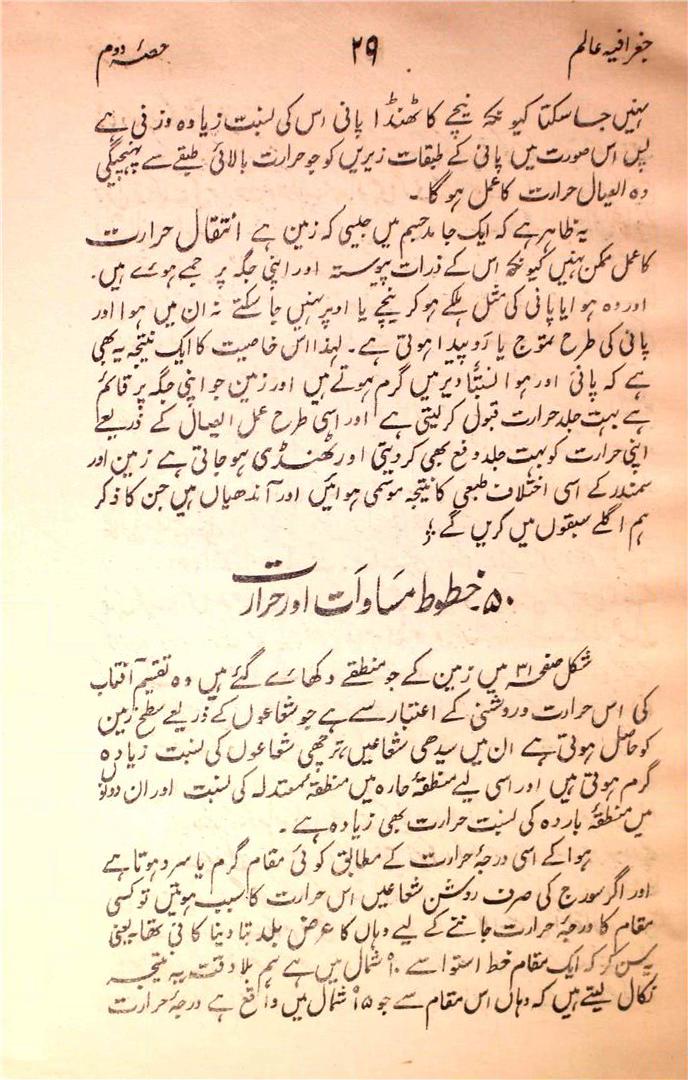 جغرافیہ عالم ۲۹ حصہٴ دوم
نہیں جا سکتا کیونکہ نیچے کا ٹھنڈا پانی اس کی نسبت زیادہ وزنی ہے
پس اس صورت میں پانی کے طبقات زیریں کو جو حرارت بالائی طبقے سے پہنچیگی
وہ ایصال حرارت کا عمل ہو گا۔
یہ ظاہر ہے کہ ایک جامد جسم میں جیسی کہ زمین ہے انتقال حرارت
کا عمل ممکن نہیں کیونکہ اس کے ذرات پیوستہ اور اپنی جگہ پر جمے ہوے ہیں۔
اور وہ ہوا یا پانی کی مثل ہلکے ہو کر نیچے یا اوپر نہیں جا سکتے نہ ان میں ہوا اور
پانی کی طرح تموج یا رَو پیدا ہوتی ہے۔ لہذا اس خاصیت کا ایک نتیجہ یہ بھی
ہے کہ پانی اور ہوا نسبتاً دیر میں گرم ہوتے ہیں اور زمین جو اپنی جگہ پر قائم
ہے بہت جلد حرارت قبول کر لیتی ہے اور اسی طرح عمل ایصال کے ذریعے
اپنی حرارت کو بہت جلد دفع بھی کر دیتی اور ٹھنڈی ہو جاتی ہے زمین اور
سمندر کے اسی اختلاف طبعی کا نتیجہ موسمی ہوائیں اور آندھیاں ہیں جن کا ذکر
ہم اگلے سبقوں میں کریں گے ؛
۵۰۔ خطوط مَساواَت اور حرارت
شکل صفحہ ۳۱ میں زمین کے جو منطقے دکھاے گئے ہیں وہ تقسیم آفتاب
کی اس حرارت و روشنی کے اعتبار سے ہے جو شعاعوں کے ذریعے سطح زمین
کو حاصل ہوتی ہے ان میں سیدھی شعاعیں ترچھی شعاعوں کی نسبت زیادہ
گرم ہوتی ہیں اور اسی لیے منطقۂ حارہ میں منطقۂ معتدلہ کی نسبت اور ان دونوں
میں منطقۂ باردہ کی نسبت حرارت بھی زیادہ ہے۔
ہوا کے اسی درجۂ حرارت کے مطابق کوئی مقام گرم یا سرد ہوتا ہے
اور اگر سورج کی صرف روشن شعاعیں اس حرارت کا سبب ہوتیں تو کسی
مقام کا درجۂ حرارت جاننے کے لیے وہاں کا عرض بلد بتا دینا کافی تھا یعنی
یہ سن کر کہ ایک مقام خط استوا سے ۱۰ْ شمال میں ہے ہم بلا دقت یہ نتیجہ
نکال لیتے ہیں کہ وہاں اس مقام سے جو ۱۵ْ شمال میں واقع ہے درجۂ حرارت